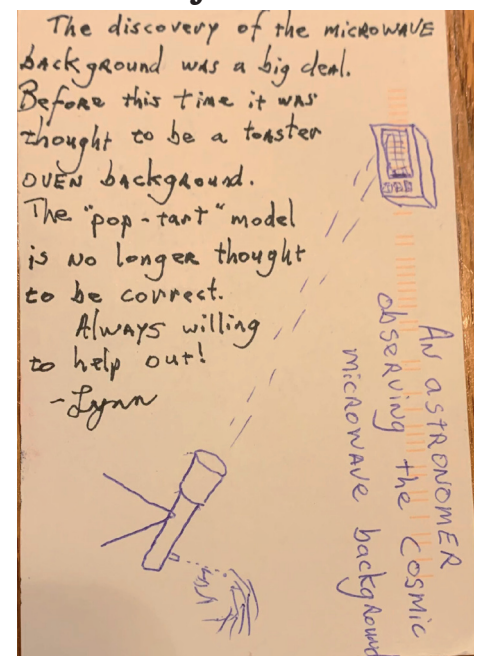 The discovery of the microwave
background was a big deal.
Before this time it was
thought to be a toaster
oven background.
The "pop-tart" model
is no longer thought
to be correct.
Always willing
to help out!
-Lynn
An astronomer
observing the cosmic
microwave background